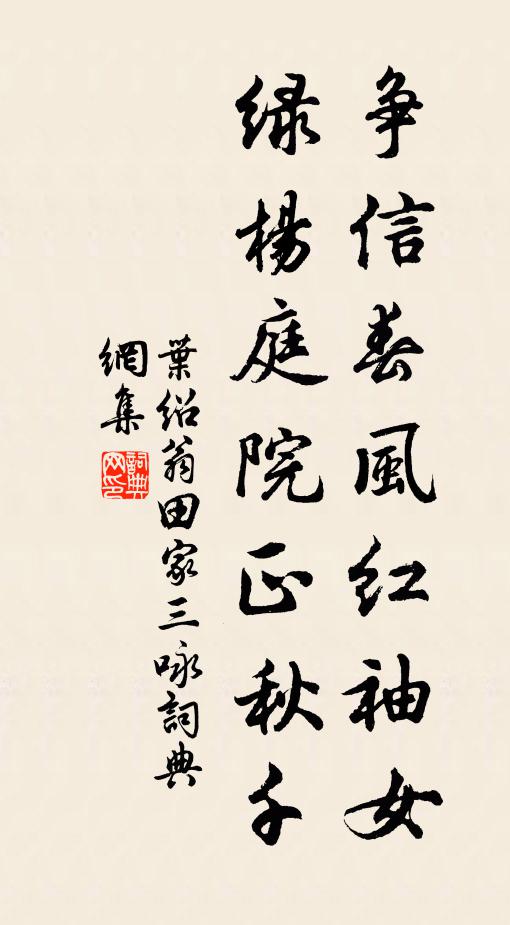 争信春風紅袖女
綠楊庭院正秋千
葉紹翁田家三咏詞典
網集
詞典
网印